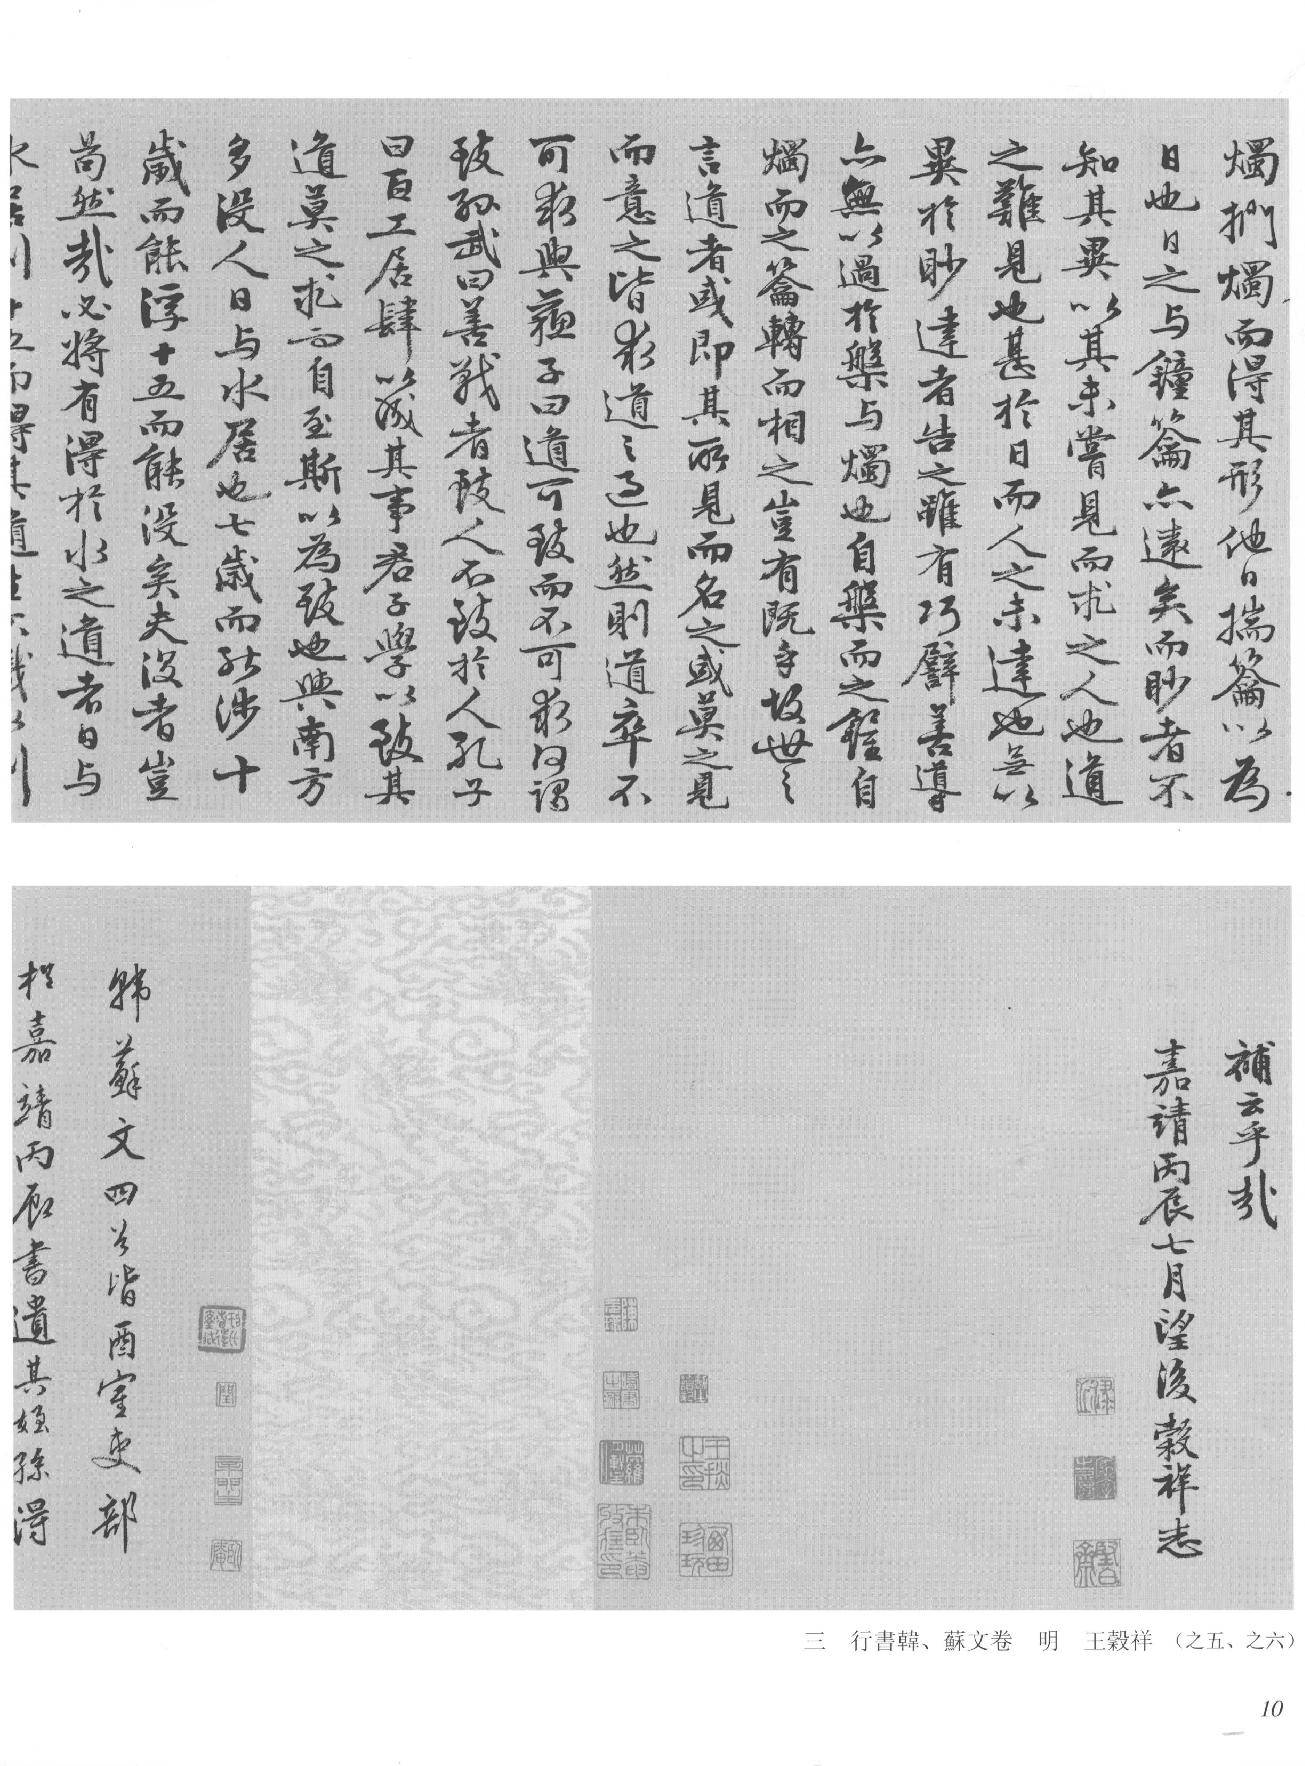 燭捫燭而得其形他日揣籥以為
日也日之与鐘籥亦遠矣而眇者不
知其異以其未嘗見而求之人也道
之難見也甚於日而人之未達也無以
異於眇達者告之雖有巧譬善導
亦無以過於槃与燭也自槃而之鐘自
燭而之籥轉而相之豈有既乎故世之
言道者或即其所見而名之或莫之見
而意之皆求道之過也然則道卒不
可求與蘓子曰道可致而不可求何謂
致孫武曰善戰者致人不致於人孔子
曰百工居肆以成其事君子學以致其
道莫之求而自至斯以為致也與南方
多没人日与水居也七歲而能涉十
歲而能浮十五而能没矣夫没者豈
苟然哉必將有得於水之道者日与
水居則十五而得其道生不識水則
補云乎哉
嘉靖丙辰七月望後穀祥志
韩蘇文四首皆酉室吏部
於嘉靖丙辰書遺其姪孫得
三　行書韓、蘇文卷　明　王穀祥　（之五、之六）
10